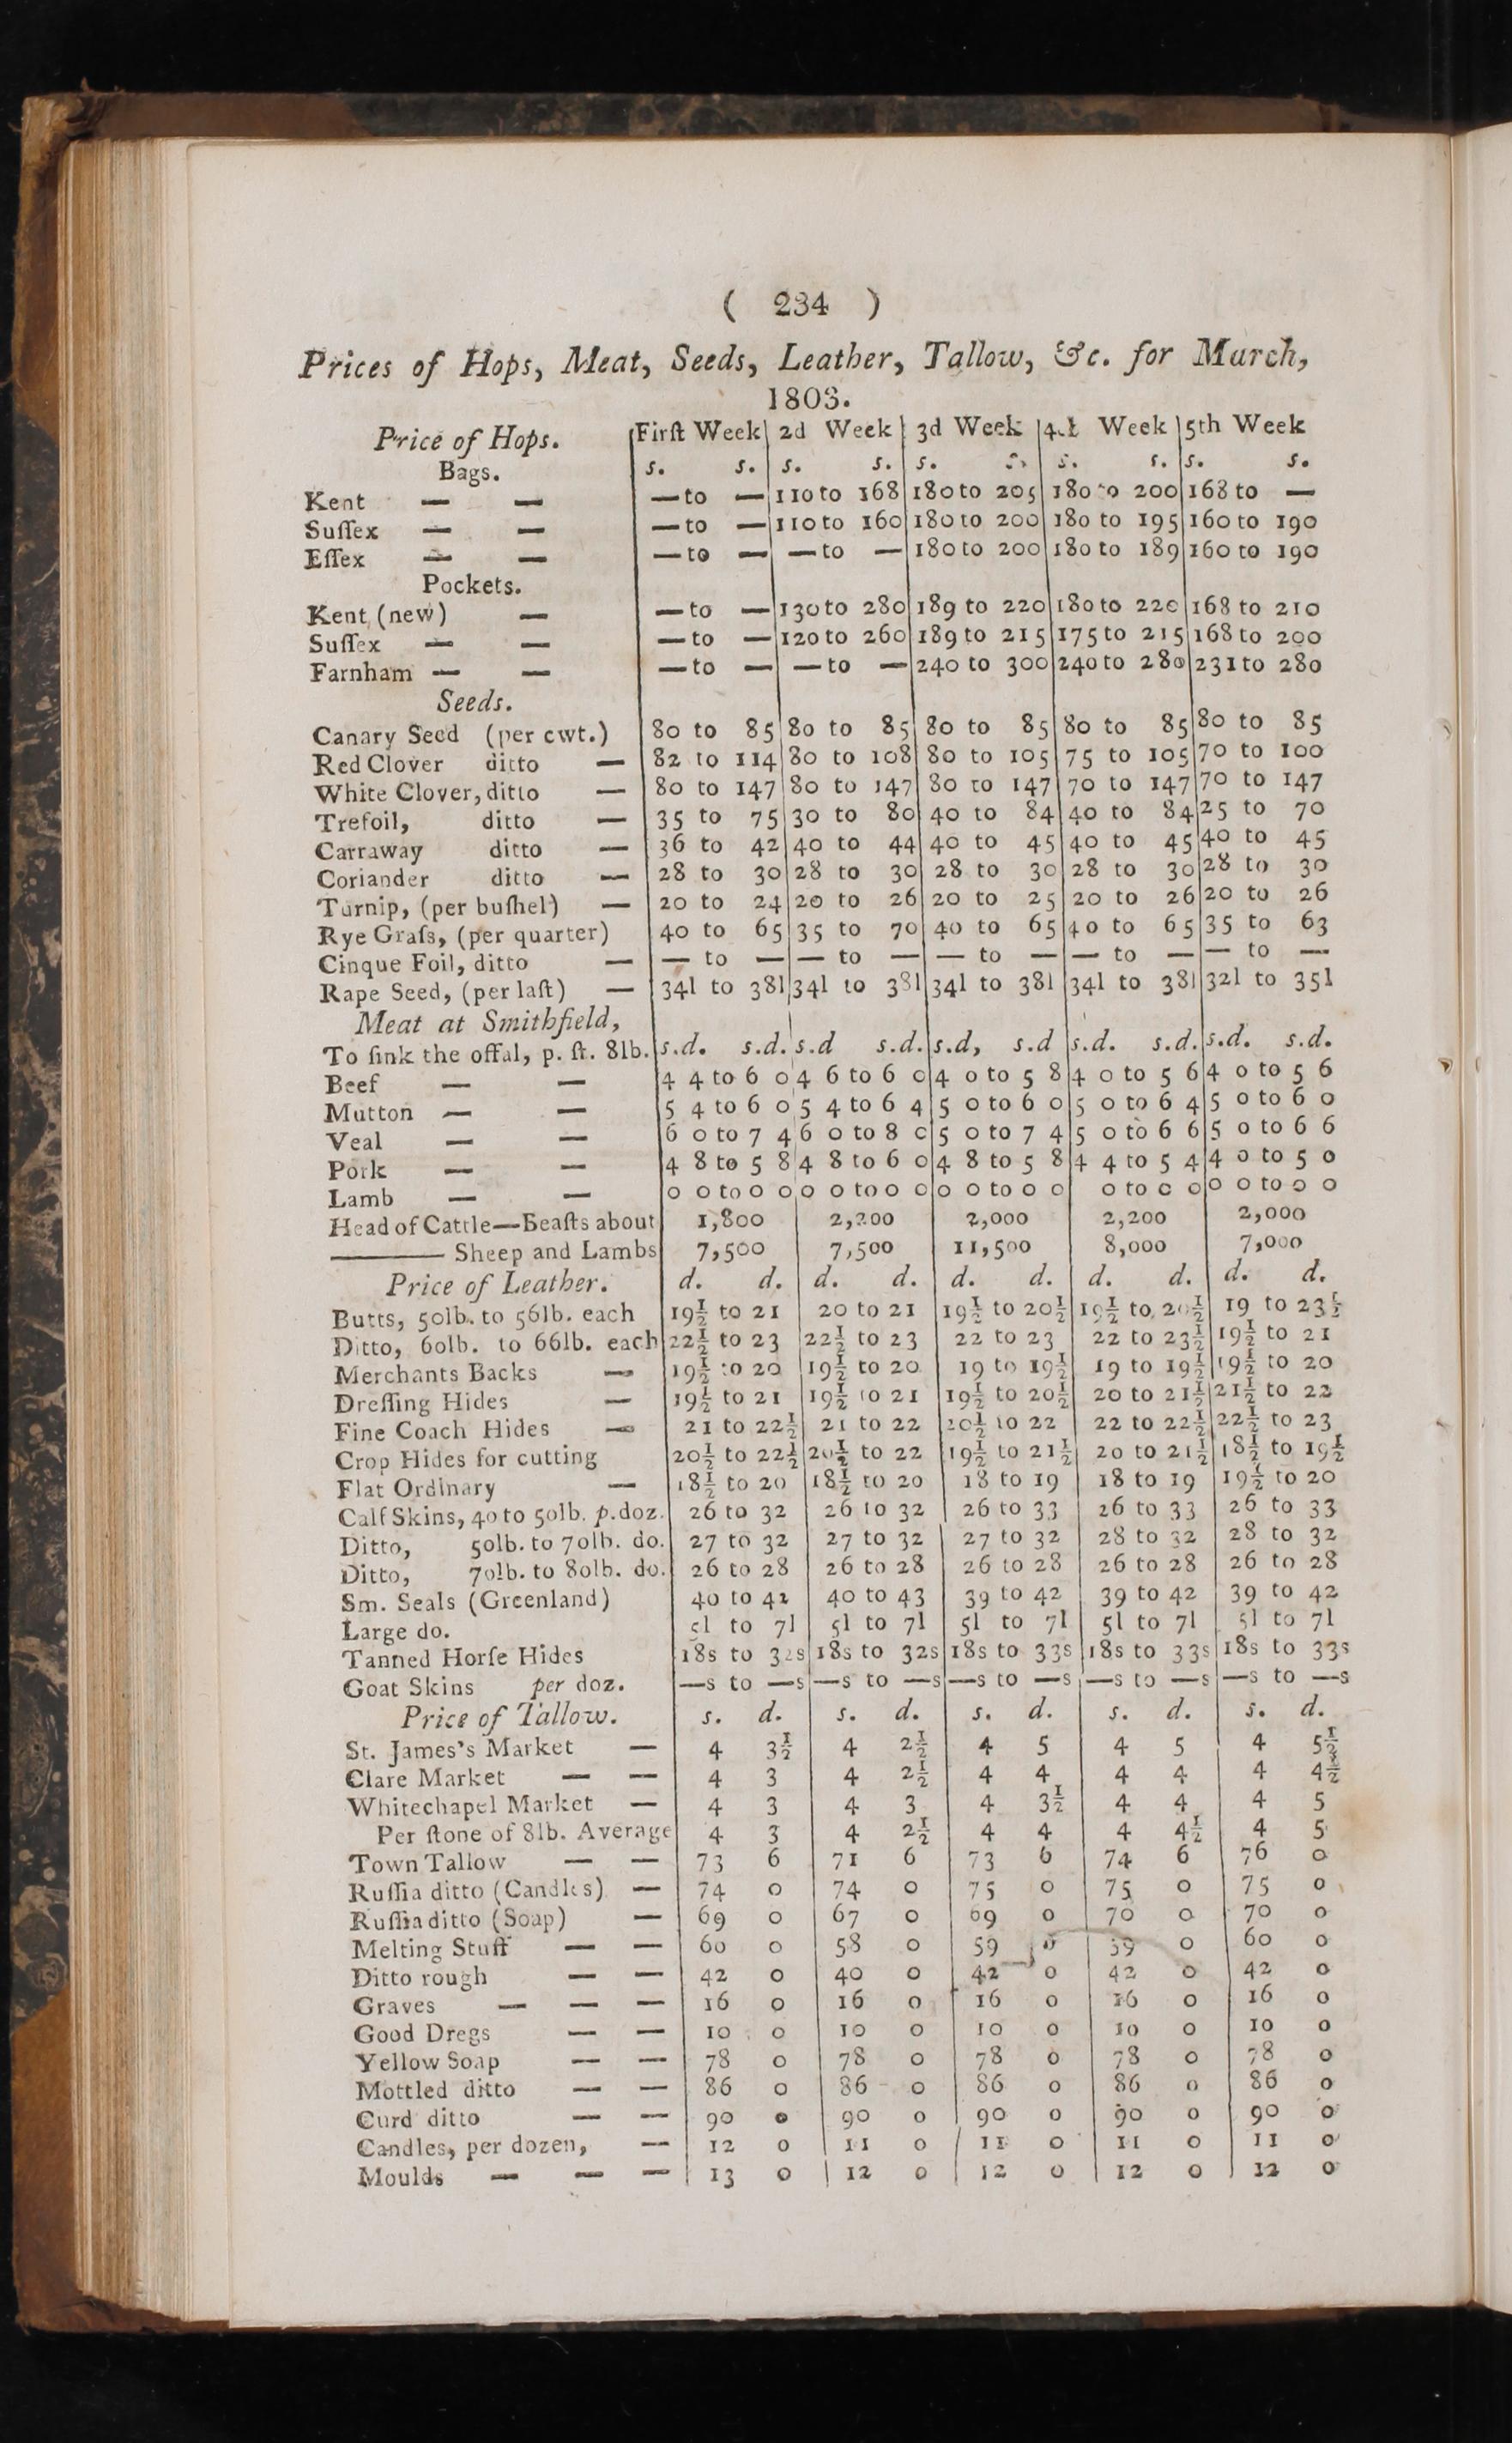 ( 234 )
Prices of Hops, Meat, Seeds, Leather, Tallow, &c. for March,
1803.
Price of Hops. Firſt Week 2d Week 3d Week Week 5th Week
Bags. s. s. s. s. s. s. s. s. s.
Kent — — — to — 110 to 168 180 to 205 180 to 200 168 to —
Suſſex — — — to — 110 to 160 180 to 200 180 to 195 160 to 190
Eſſex — — — to — — to — 180 to 200 180 to 189 160 to 190
Pockets.
Kent (new) — — to — 130 to 280 189 to 220 180 to 220 168 to 210
Suſſex — — — to — 120 to 260 189 to 215 175 to 215 168 to 200
Farnham — — — to — — to — 240 to 300 240 to 280 231 to 280
Seeds.
Canary Seed (per cwt.) 80 to 85 80 to 85 80 to 85 80 to 85 80 to 85
Red Clover ditto — 82 to 114 80 to 108 80 to 105 75 to 105 70 to 100
White Clover, ditto — 80 to 147 80 to 147 80 to 147 70 to 147 70 to 147
Trefoil, ditto — 35 to 75 30 to 80 40 to 84 40 to 84 25 to 70
Carraway ditto — 36 to 42 40 to 44 40 to 45 40 to 45 40 to 45
Coriander ditto — 28 to 30 28 to 30 28 to 30 28 to 30 28 to 30
Turnip, (per buſhel) — 20 to 24 20 to 26 20 to 25 20 to 26 20 to 26
Rye Graſs, (per quarter) 40 to 65 35 to 70 40 to 65 40 to 65 35 to 63
Cinque Foil, ditto — — to — — to — — to — — to — — to —
Rape Seed, (per laſt) — 34l to 38l 34l to 38l 34l to 38l 34l to 38l 32l to 35l
Meat at Smithfield,
To ſink the offal, p. ſt. 8lb. s.d. s.d. s.d s.d. s.d, s.d s.d. s.d. s.d. s.d.
Beef — — 4 4 to 6 0 4 6 to 6 0 4 0 to 5 8 4 0 to 5 6 4 0 to 5 6
Mutton — — 5 4 to 6 0 5 4 to 6 4 5 0 to 6 0 5 0 to 6 4 5 0 to 6 0
Veal — — 6 0 to 7 4 6 0 to 8 0 5 0 to 7 4 5 0 to 6 6 5 0 to 6 6
Pork — — 4 8 to 5 8 4 8 to 6 0 4 8 to 5 8 4 4 to 5 4 4 0 to 5 0
Lamb — — 0 0 to 0 0 0 0 to 0 0 0 0 to 0 0 0 to 0 0 0 0 to 0 0
Head of Cattle—Beaſts about 1,800 2,200 2,000 2,200 2,000
——— Sheep and Lambs 7,500 7,500 11,500 8,000 7,000
Price of Leather. d. d. d. d. d. d. d. d. d. d.
Butts, 50lb. to 56lb. each 19½ to 21 20 to 21 19½ to 20½ 19½ to 20½ 19 to 23½
Ditto, 60lb. to 66lb. each 22½ to 23 22½ to 23 22 to 23 22 to 23½ 19½ to 21
Merchants Backs — 19½ to 20 19½ to 20 19 to 19½ 19 to 19½ 19½ to 20
Dreſſing Hides — 19½ to 21 19½ to 21 19½ to 20½ 20 to 21½ 21½ to 22
Fine Coach Hides — 21 to 22½ 21 to 22 20½ to 22 22 to 22½ 22½ to 23
Crop Hides for cutting 20½ to 22½ 20½ to 22 19½ to 21½ 20 to 21½ 18½ to 19½
Flat Ordinary — 18½ to 20 18½ to 20 18 to 19 18 to 19 19½ to 20
Calf Skins, 40 to 50lb. p.doz. 26 to 32 26 to 32 26 to 33 26 to 33 26 to 33
Ditto, 50lb. to 70lb. do. 27 to 32 27 to 32 27 to 32 28 to 32 28 to 32
Ditto, 70lb. to 80lb. do. 26 to 28 26 to 28 26 to 28 26 to 28 26 to 28
Sm. Seals (Greenland) 40 to 42 40 to 43 39 to 42 39 to 42 39 to 42
Large do. 5l to 7l 5l to 7l 5l to 7l 5l to 7l 5l to 7l
Tanned Horſe Hides 18s to 32s 18s to 32s 18s to 33s 18s to 33s 18s to 33s
Goat Skins per doz. —s to —s —s to —s —s to —s —s to —s —s to —s
Price of Tallow. s. d. s. d. s. d. s. d. s. d.
St. James's Market — 4 3½ 4 2½ 4 5 4 5 4 5½
Clare Market — — 4 3 4 2½ 4 4 4 4 4 4½
Whitechapel Market — 4 3 4 3 4 3½ 4 4 4 5
Per ſtone of 8lb. Average 4 3 4 2½ 4 4 4 4½ 4 5
Town Tallow — — 73 6 71 6 73 6 74 6 76 0
Ruſſia ditto (Candles) — 74 0 74 0 75 0 75 0 75 0
Ruſſia ditto (Soap) — 69 0 67 0 69 0 70 0 70 0
Melting Stuff — — 60 0 58 0 59 0 59 0 60 0
Ditto rough — — 42 0 40 0 42 0 42 0 42 0
Graves — — — 16 0 16 0 16 0 16 0 16 0
Good Dregs — — 10 0 10 0 10 0 10 0 10 0
Yellow Soap — — 78 0 78 0 78 0 78 0 78 0
Mottled ditto — — 86 0 86 0 86 0 86 0 86 0
Curd ditto — — 90 0 90 0 90 0 90 0 90 0
Candles, per dozen, — 12 0 11 0 11 0 11 0 11 0
Moulds — — — 13 0 12 0 12 0 12 0 12 0